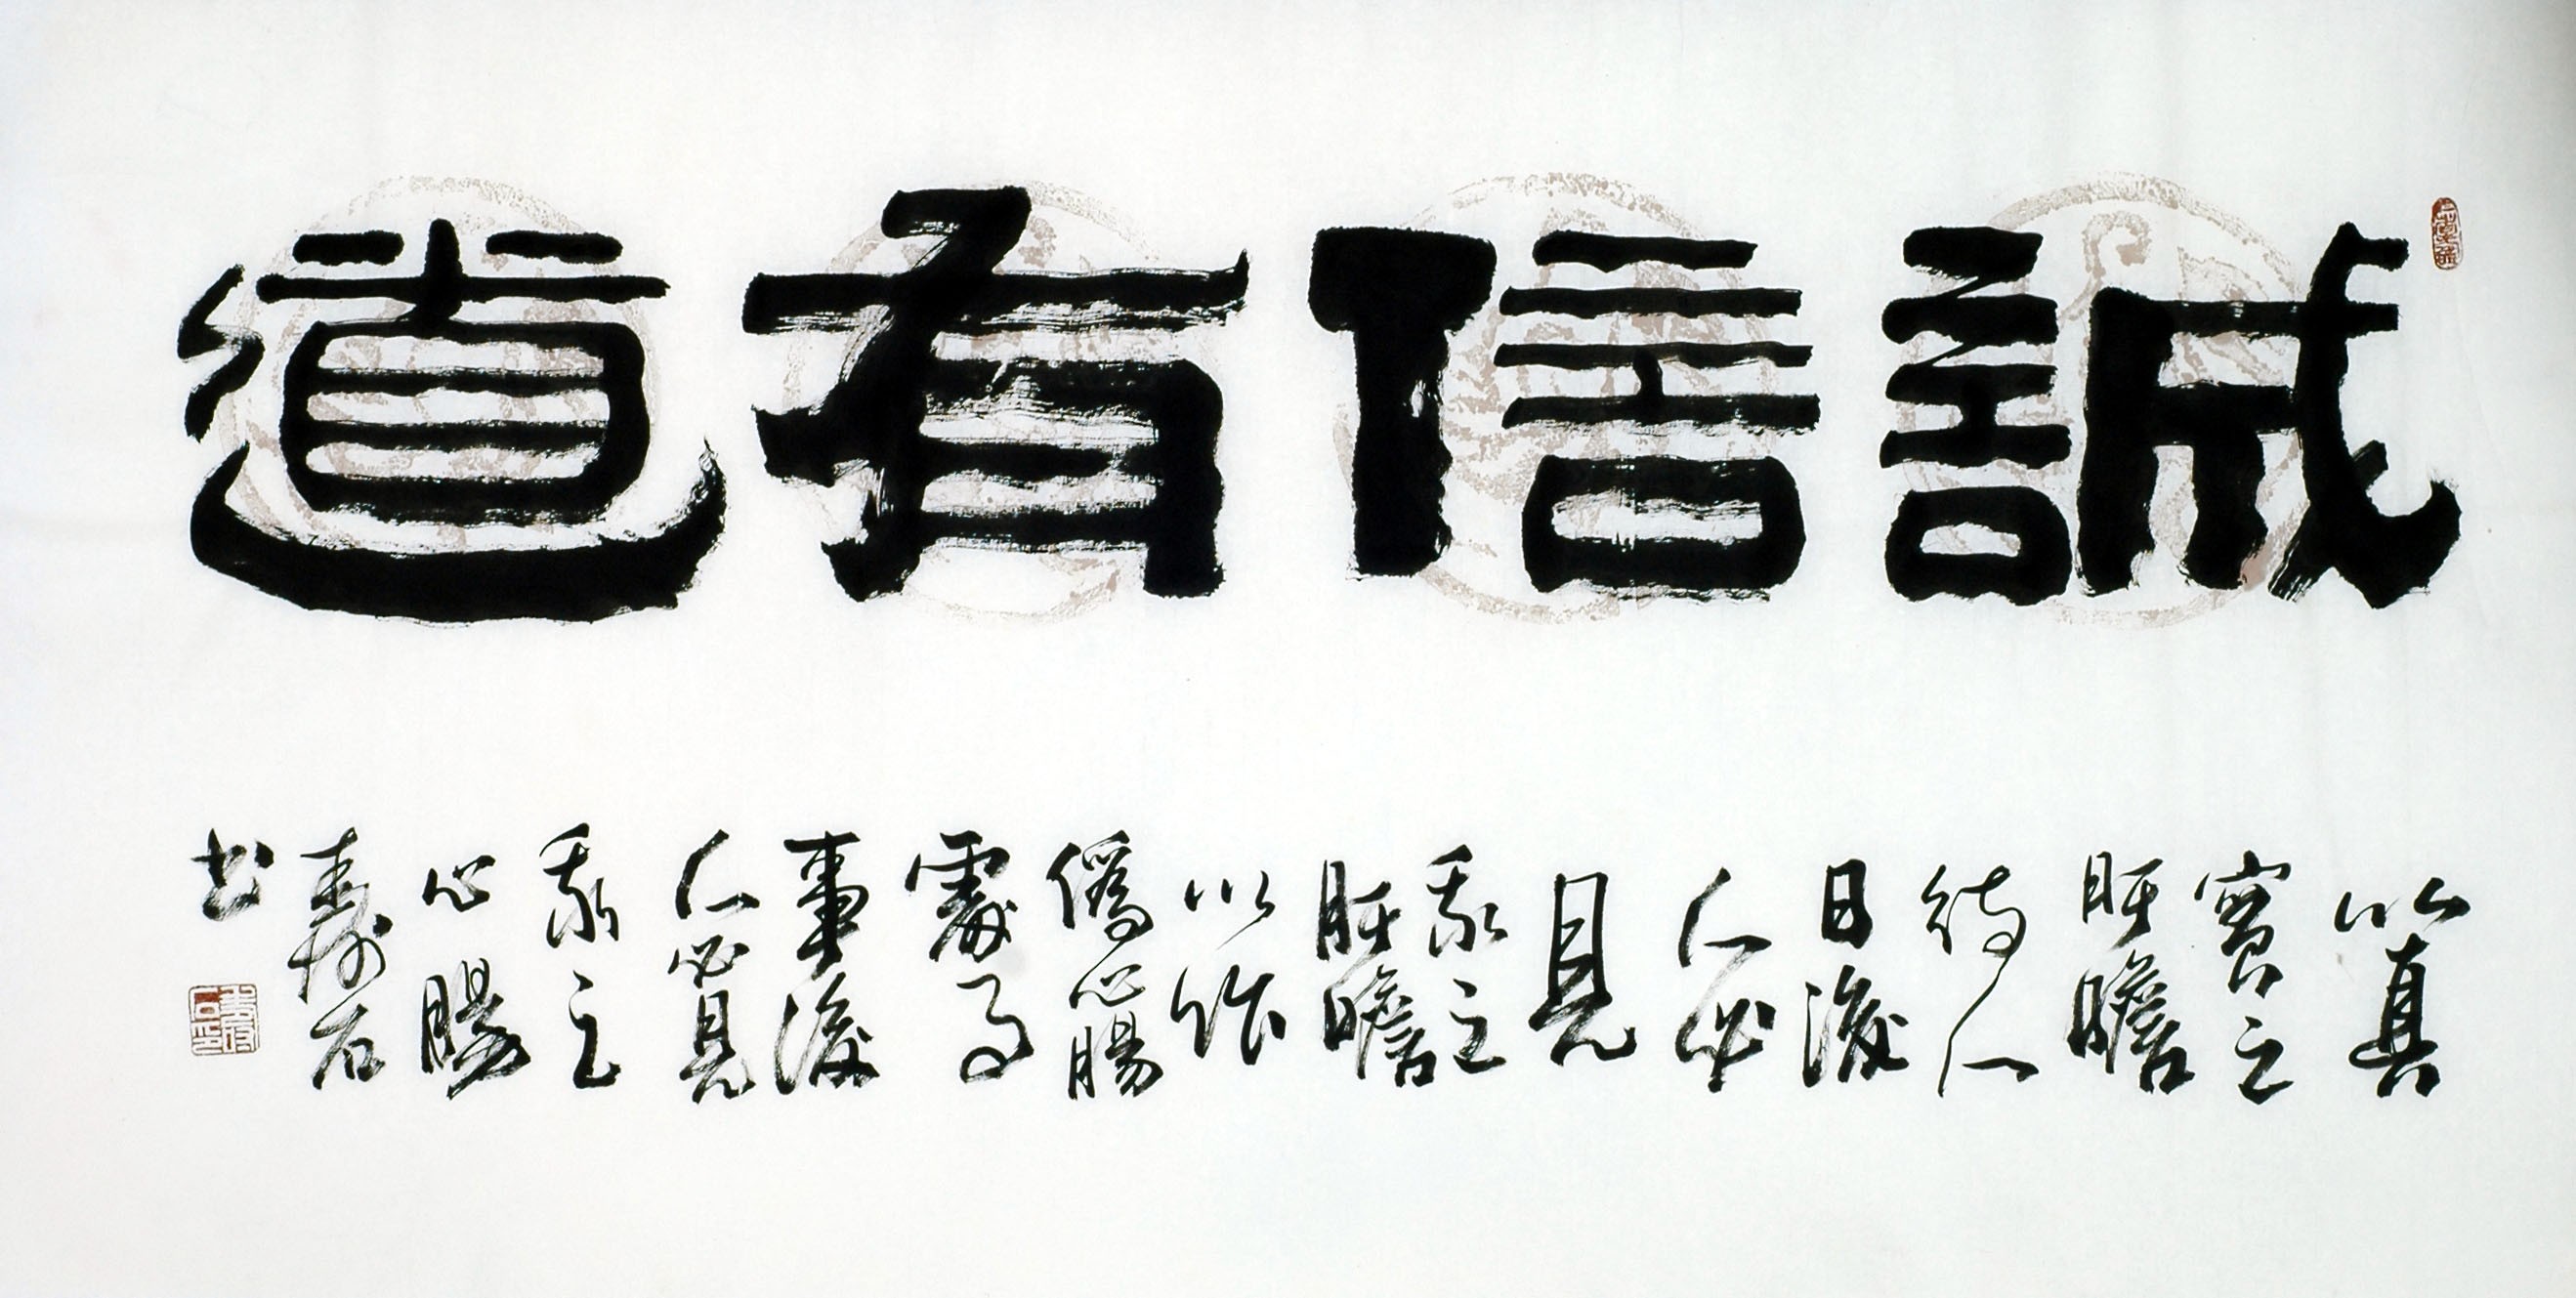 誠信有道
以真
實之
肝膽
待人
日後
人必
見
我之
肝膽
以詐
僞心腸
處事
事後
人必見
我之
心腸
壽石
書